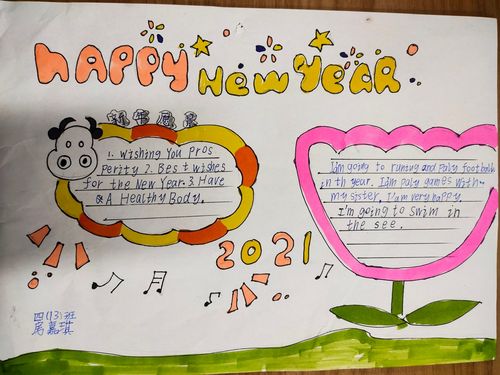 HAPPY New YeaR
1. Wishing You Pros
Perity 2. Best wishes
for the New Year. 3 Have
& A Healthy Body.
I'm going to runing and Paly footbalk
in th year. I'm Paly games with
my sister, I'am very happy.
I'm going to swim in
the see.
2021
四(13)班
马嘉琪